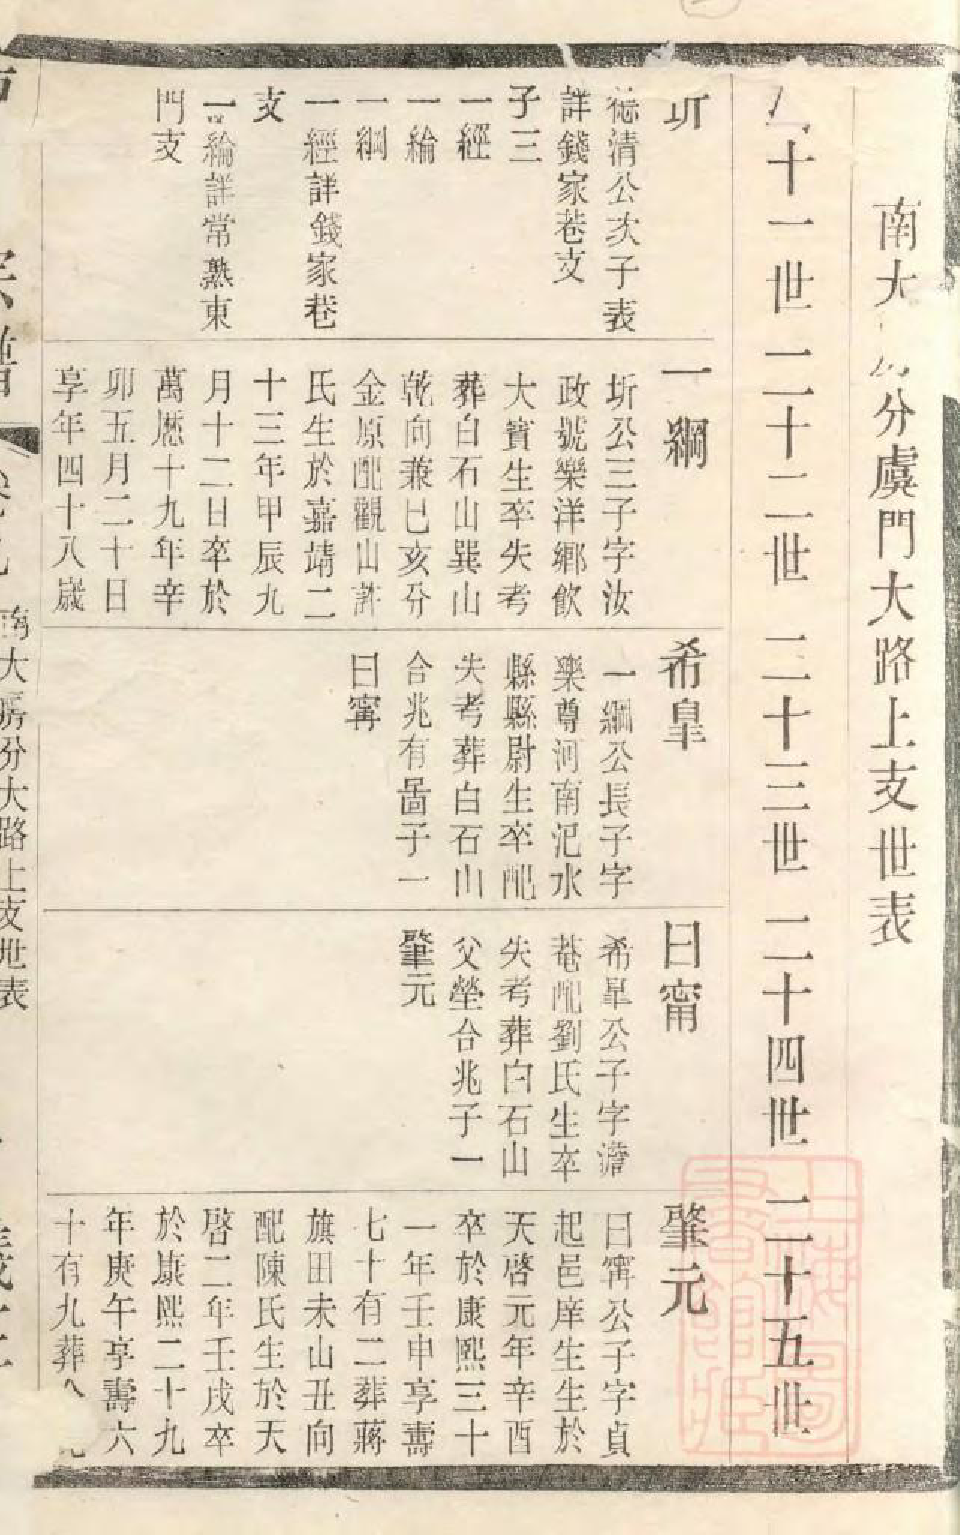 南大分虞門大路上支世表
十一世 二十二世 二十三世 二十四世 二十五世
圻
德清公次子表
詳錢家巷支
子三
一經
一綸
一綱
一經詳錢家巷
支
一綸詳常熟東
門支
一綱
圻公三子字汝
政號樂洋鄉飲
大賓生卒失考
葬白石山巽山
乾向兼巳亥分
金原配觀山許
氏生於嘉靖二
十三年甲辰九
月十二日卒於
萬曆十九年辛
卯五月二十日
享年四十八歲
希皇
一綱公長子字
樂尊河南汜水
縣縣尉生卒配
失考葬白石山
合兆有啚子一
曰寗
曰寗
希皐公子字澹
菴配劉氏生卒
失考葬白石山
父塋合兆子一
肇元
肇元
曰寗公子字貞
起邑庠生生於
天啓元年辛酉
卒於康熙三十
一年壬申享壽
七十有二葬蔣
旗田未山丑向
配陳氏生於天
啓二年壬戌卒
於康熙二十九
年庚午享壽六
十有九葬
南大房分大路上支世表